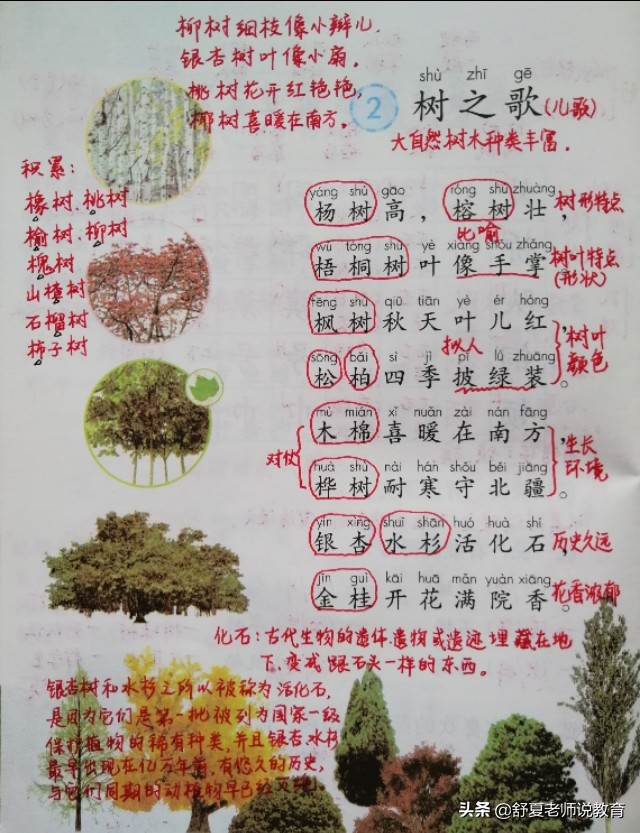 柳树细枝像小辫儿.
银杏树叶像小扇。
桃树花开红艳艳,
椰树喜暖在南方。
② shù zhī gē
树之歌(儿歌)
大自然树木种类丰富.
积累:
橡树、桃树
榆树、柳树
槐树
山楂树
石榴树
柿子树
yáng shù gāo róng shù zhuàng
杨树高,榕树壮, 树形特点
比喻
wú tóng shù yè xiàng shǒu zhǎng
梧桐树叶像手掌 树叶特点
(形状)
fēng shù qiū tiān yè ér hóng
枫树秋天叶儿红,
拟人 树叶
颜色
sōng bǎi sì jì pī lǜ zhuāng
松柏四季披绿装。
mù mián xǐ nuǎn zài nán fāng
木棉喜暖在南方,
对仗 生长
环境
huà shù nài hán shǒu běi jiāng
桦树耐寒守北疆。
yín xìng shuǐ shān huó huà shí
银杏水杉活化石, 历史久远
jīn guì kāi huā mǎn yuàn xiāng
金桂开花满院香。 花香浓郁
化石:古代生物的遗体、遗物或遗迹埋藏在地
下变成跟石头一样的东西。
银杏树和水杉之所以被称为活化石,
是因为它们是第一批被列为国家一级
保护植物的稀有种类,并且银杏水杉
最早出现在亿万年前,有悠久的历史,
与它们同期的动植物早已经灭绝
头条 @舒夏老师说教育